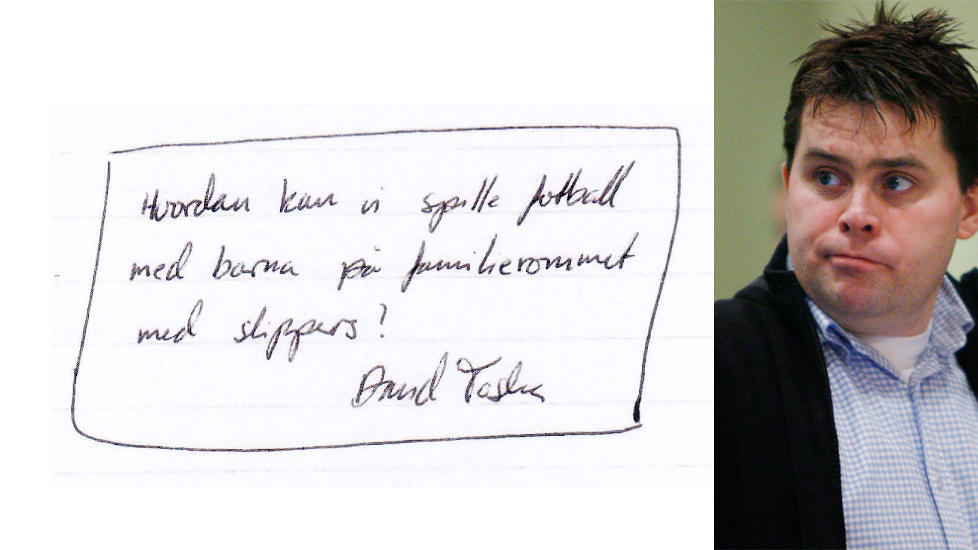 Hvordan kan vi spille fotball
med barna på familierommet
med slippers?